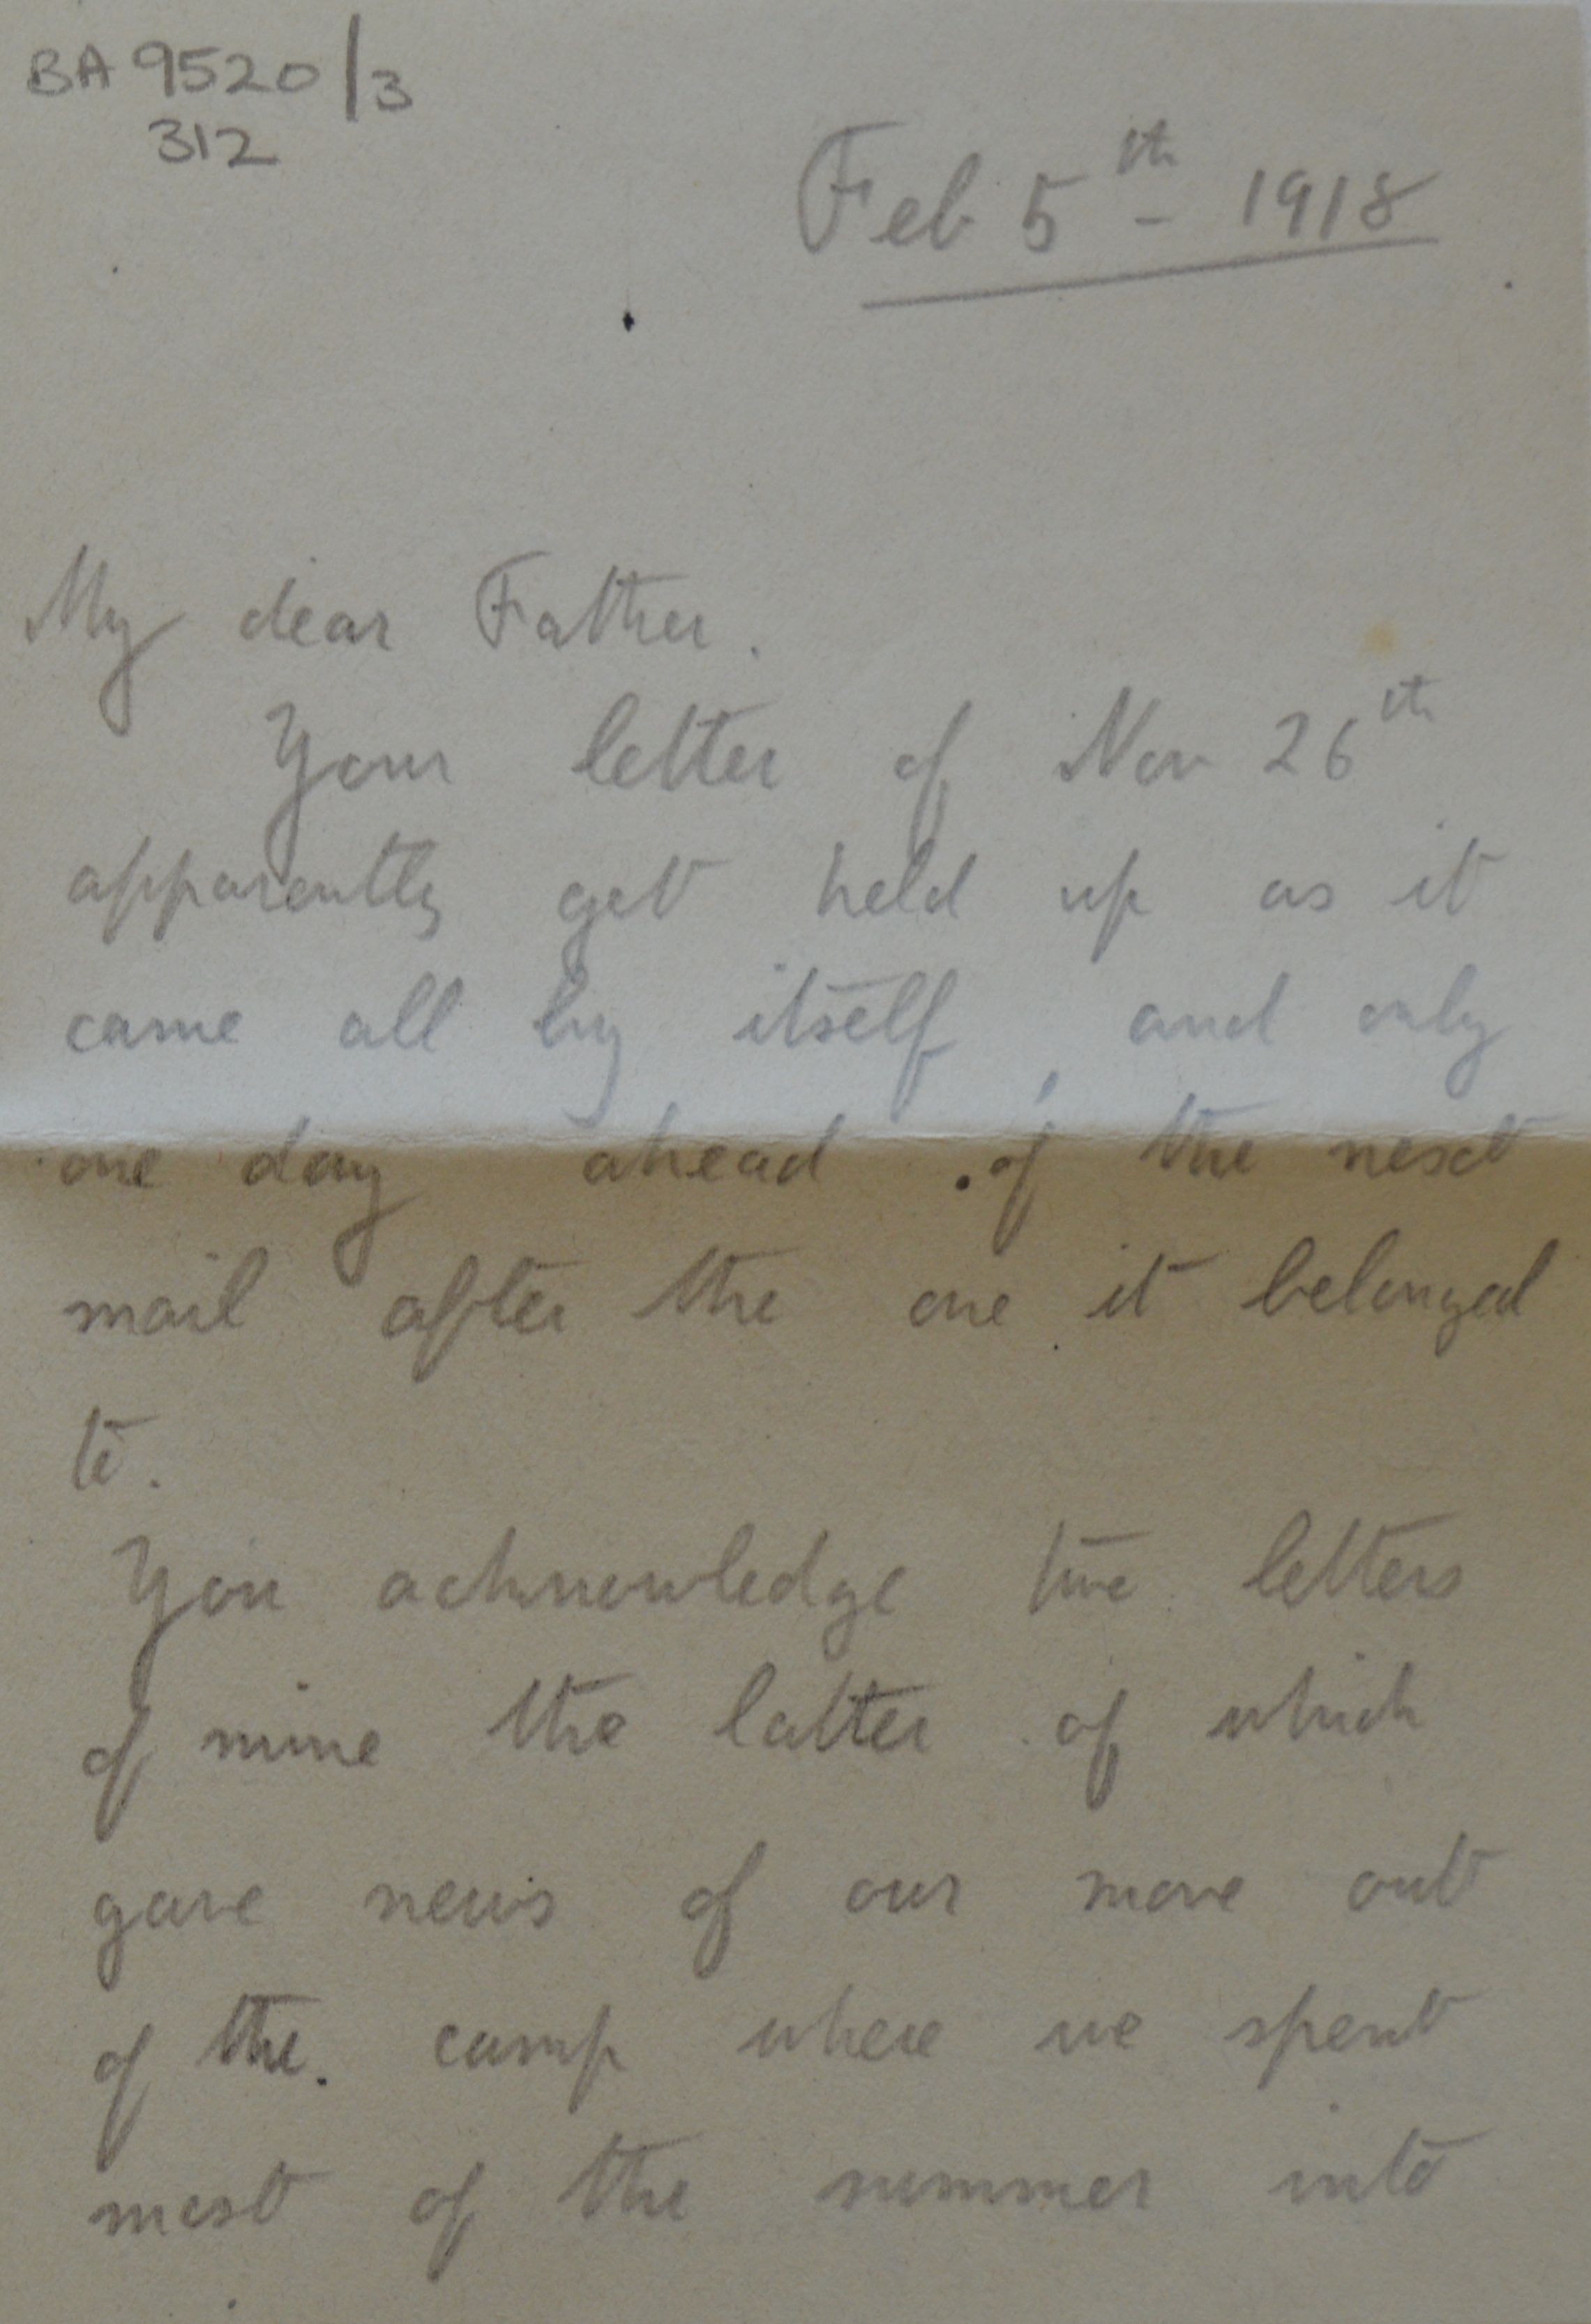 BA 9520/3
312
Feb 5th - 1918
My dear Father.
Your letter of Nov 26th
apparently got held up as it
came all by itself, and only
one day ahead of the next
mail after the one it belonged
to.
You acknowledge two letters
of mine the latter of which
gave news of our move out
of the camp where we spent
most of the summer into